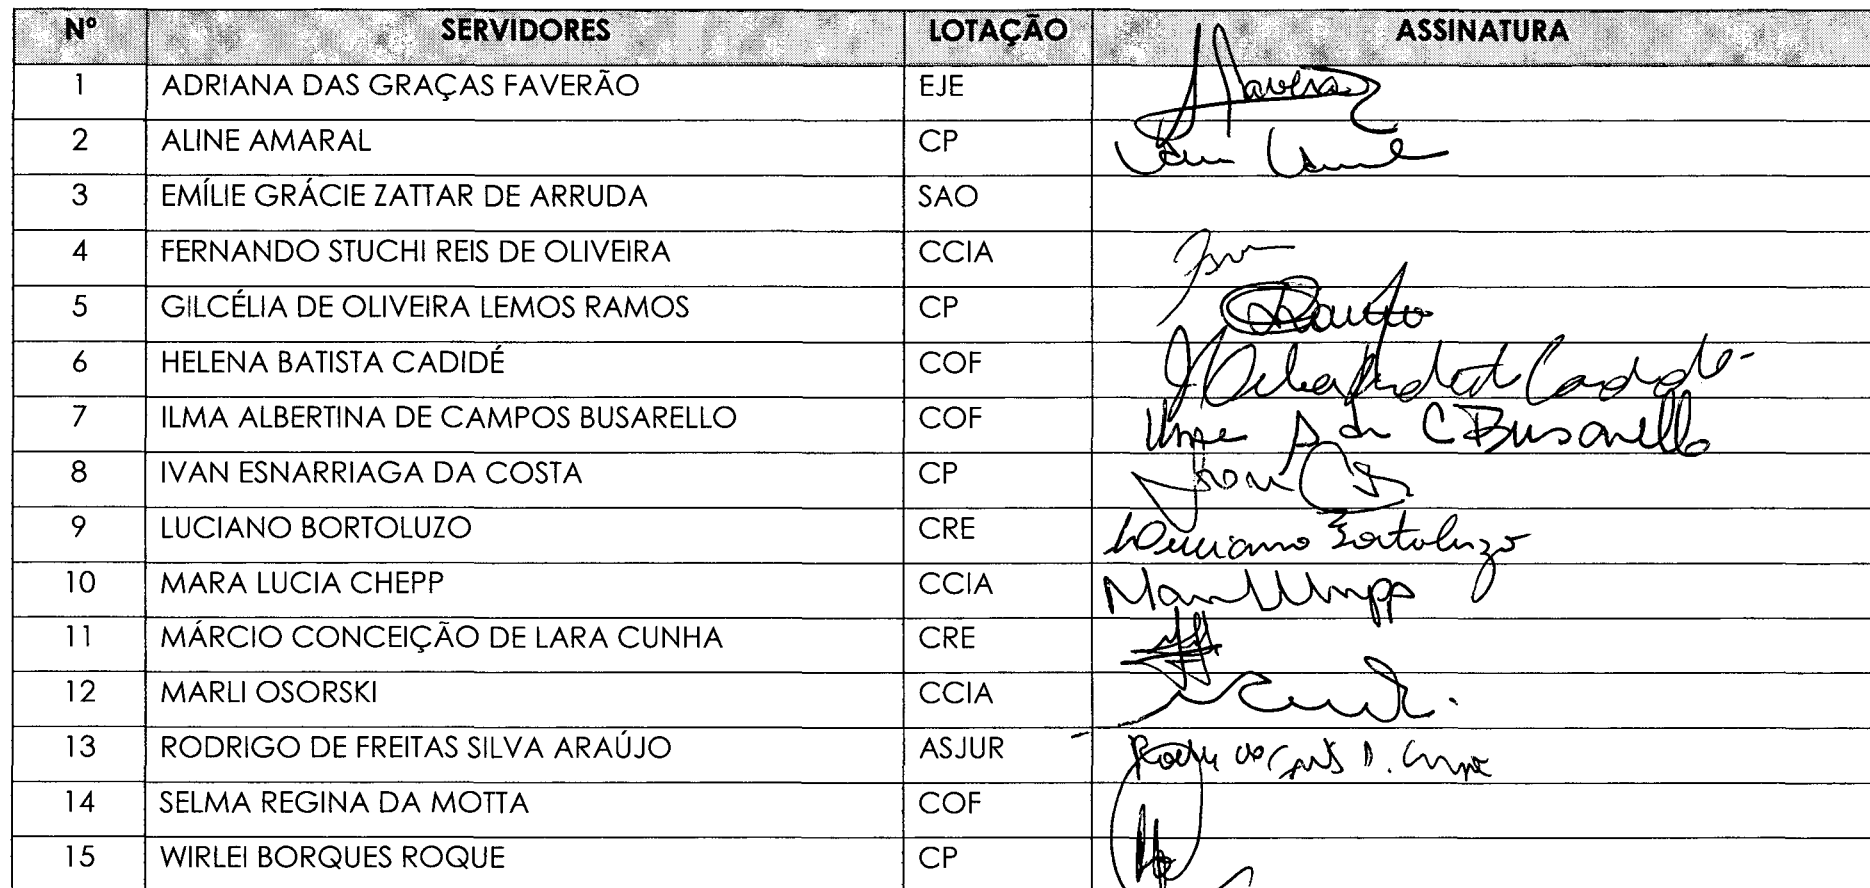 Nº SERVIDORES LOTAÇÃO ASSINATURA
1 ADRIANA DAS GRAÇAS FAVERÃO EJE
2 ALINE AMARAL CP
3 EMÍLIE GRÁCIE ZATTAR DE ARRUDA SAO
4 FERNANDO STUCHI REIS DE OLIVEIRA CCIA
5 GILCÉLIA DE OLIVEIRA LEMOS RAMOS CP
6 HELENA BATISTA CADIDÉ COF
7 ILMA ALBERTINA DE CAMPOS BUSARELLO COF C Busarello
8 IVAN ESNARRIAGA DA COSTA CP
9 LUCIANO BORTOLUZO CRE Luciano Bortoluzo
10 MARA LUCIA CHEPP CCIA
11 MÁRCIO CONCEIÇÃO DE LARA CUNHA CRE
12 MARLI OSORSKI CCIA
13 RODRIGO DE FREITAS SILVA ARAÚJO ASJUR
14 SELMA REGINA DA MOTTA COF
15 WIRLEI BORQUES ROQUE CP